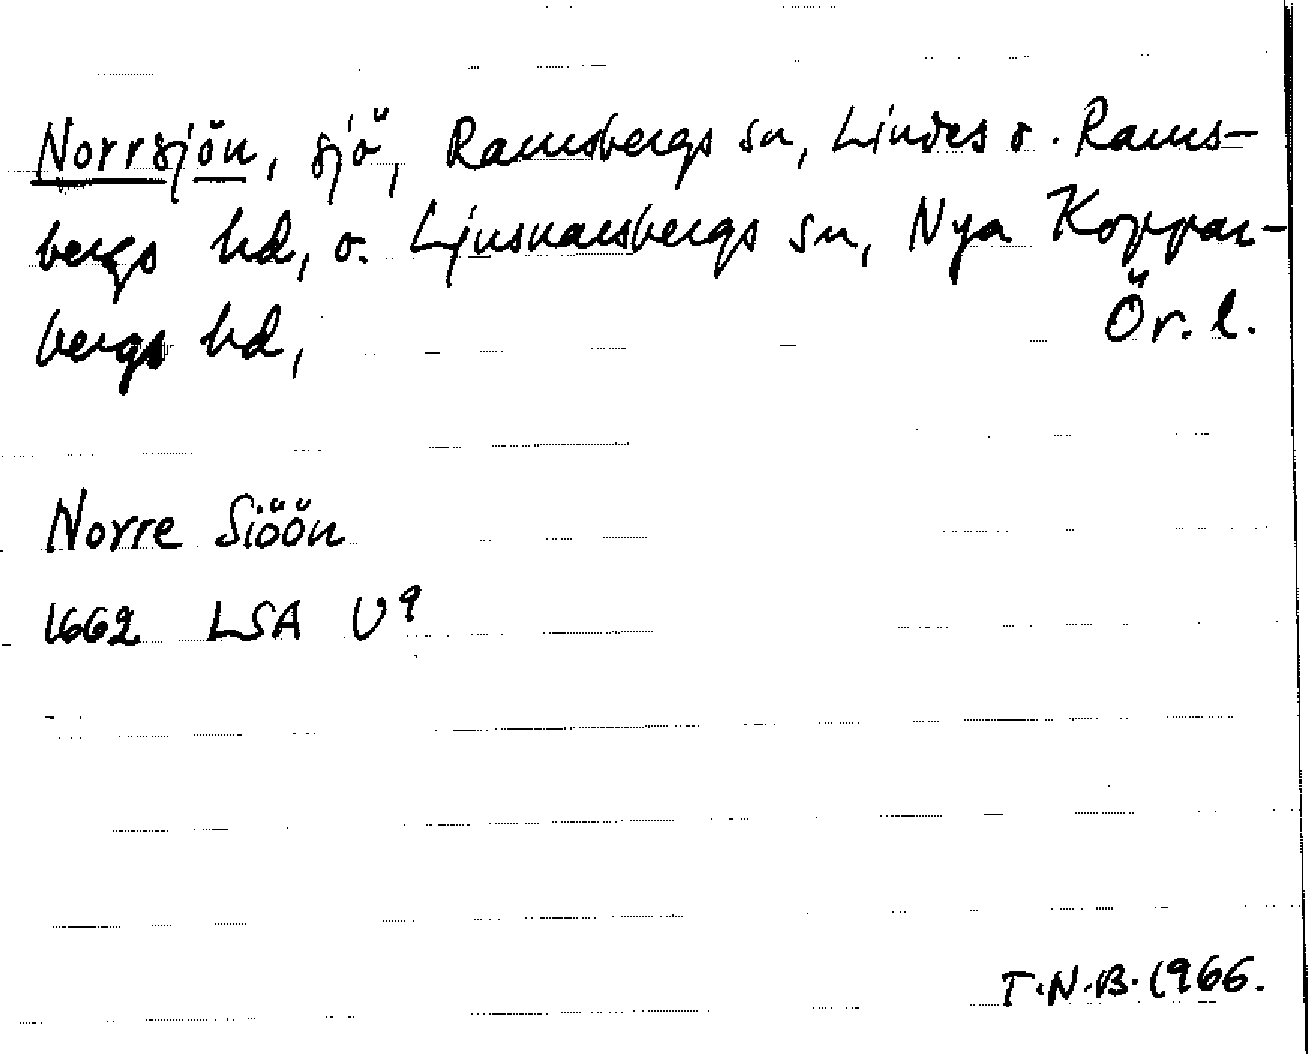 Norrsjön, sjö, Ramsbergs sn, Lindes o. Rams-
bergs hd, o. Ljusnarsbergs sn, Nya Koppar-
bergs hd, Ör. l.
Norre Siöön
1662 LSA U9
T.N.B. 1966.